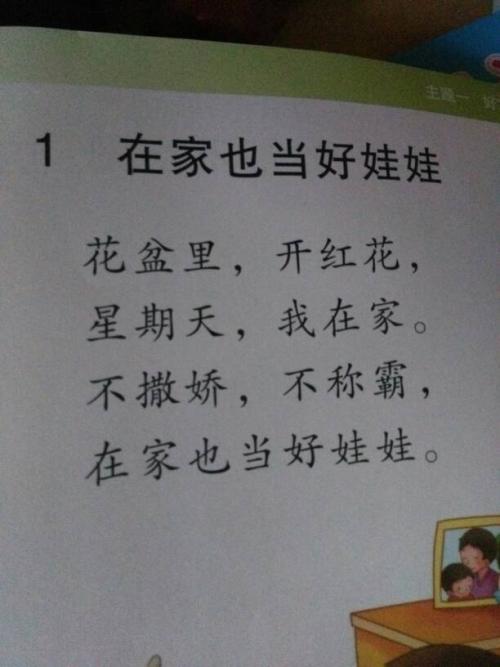 主题一 好
1 在家也当好娃娃
花盆里，开红花，
星期天，我在家。
不撒娇，不称霸，
在家也当好娃娃。